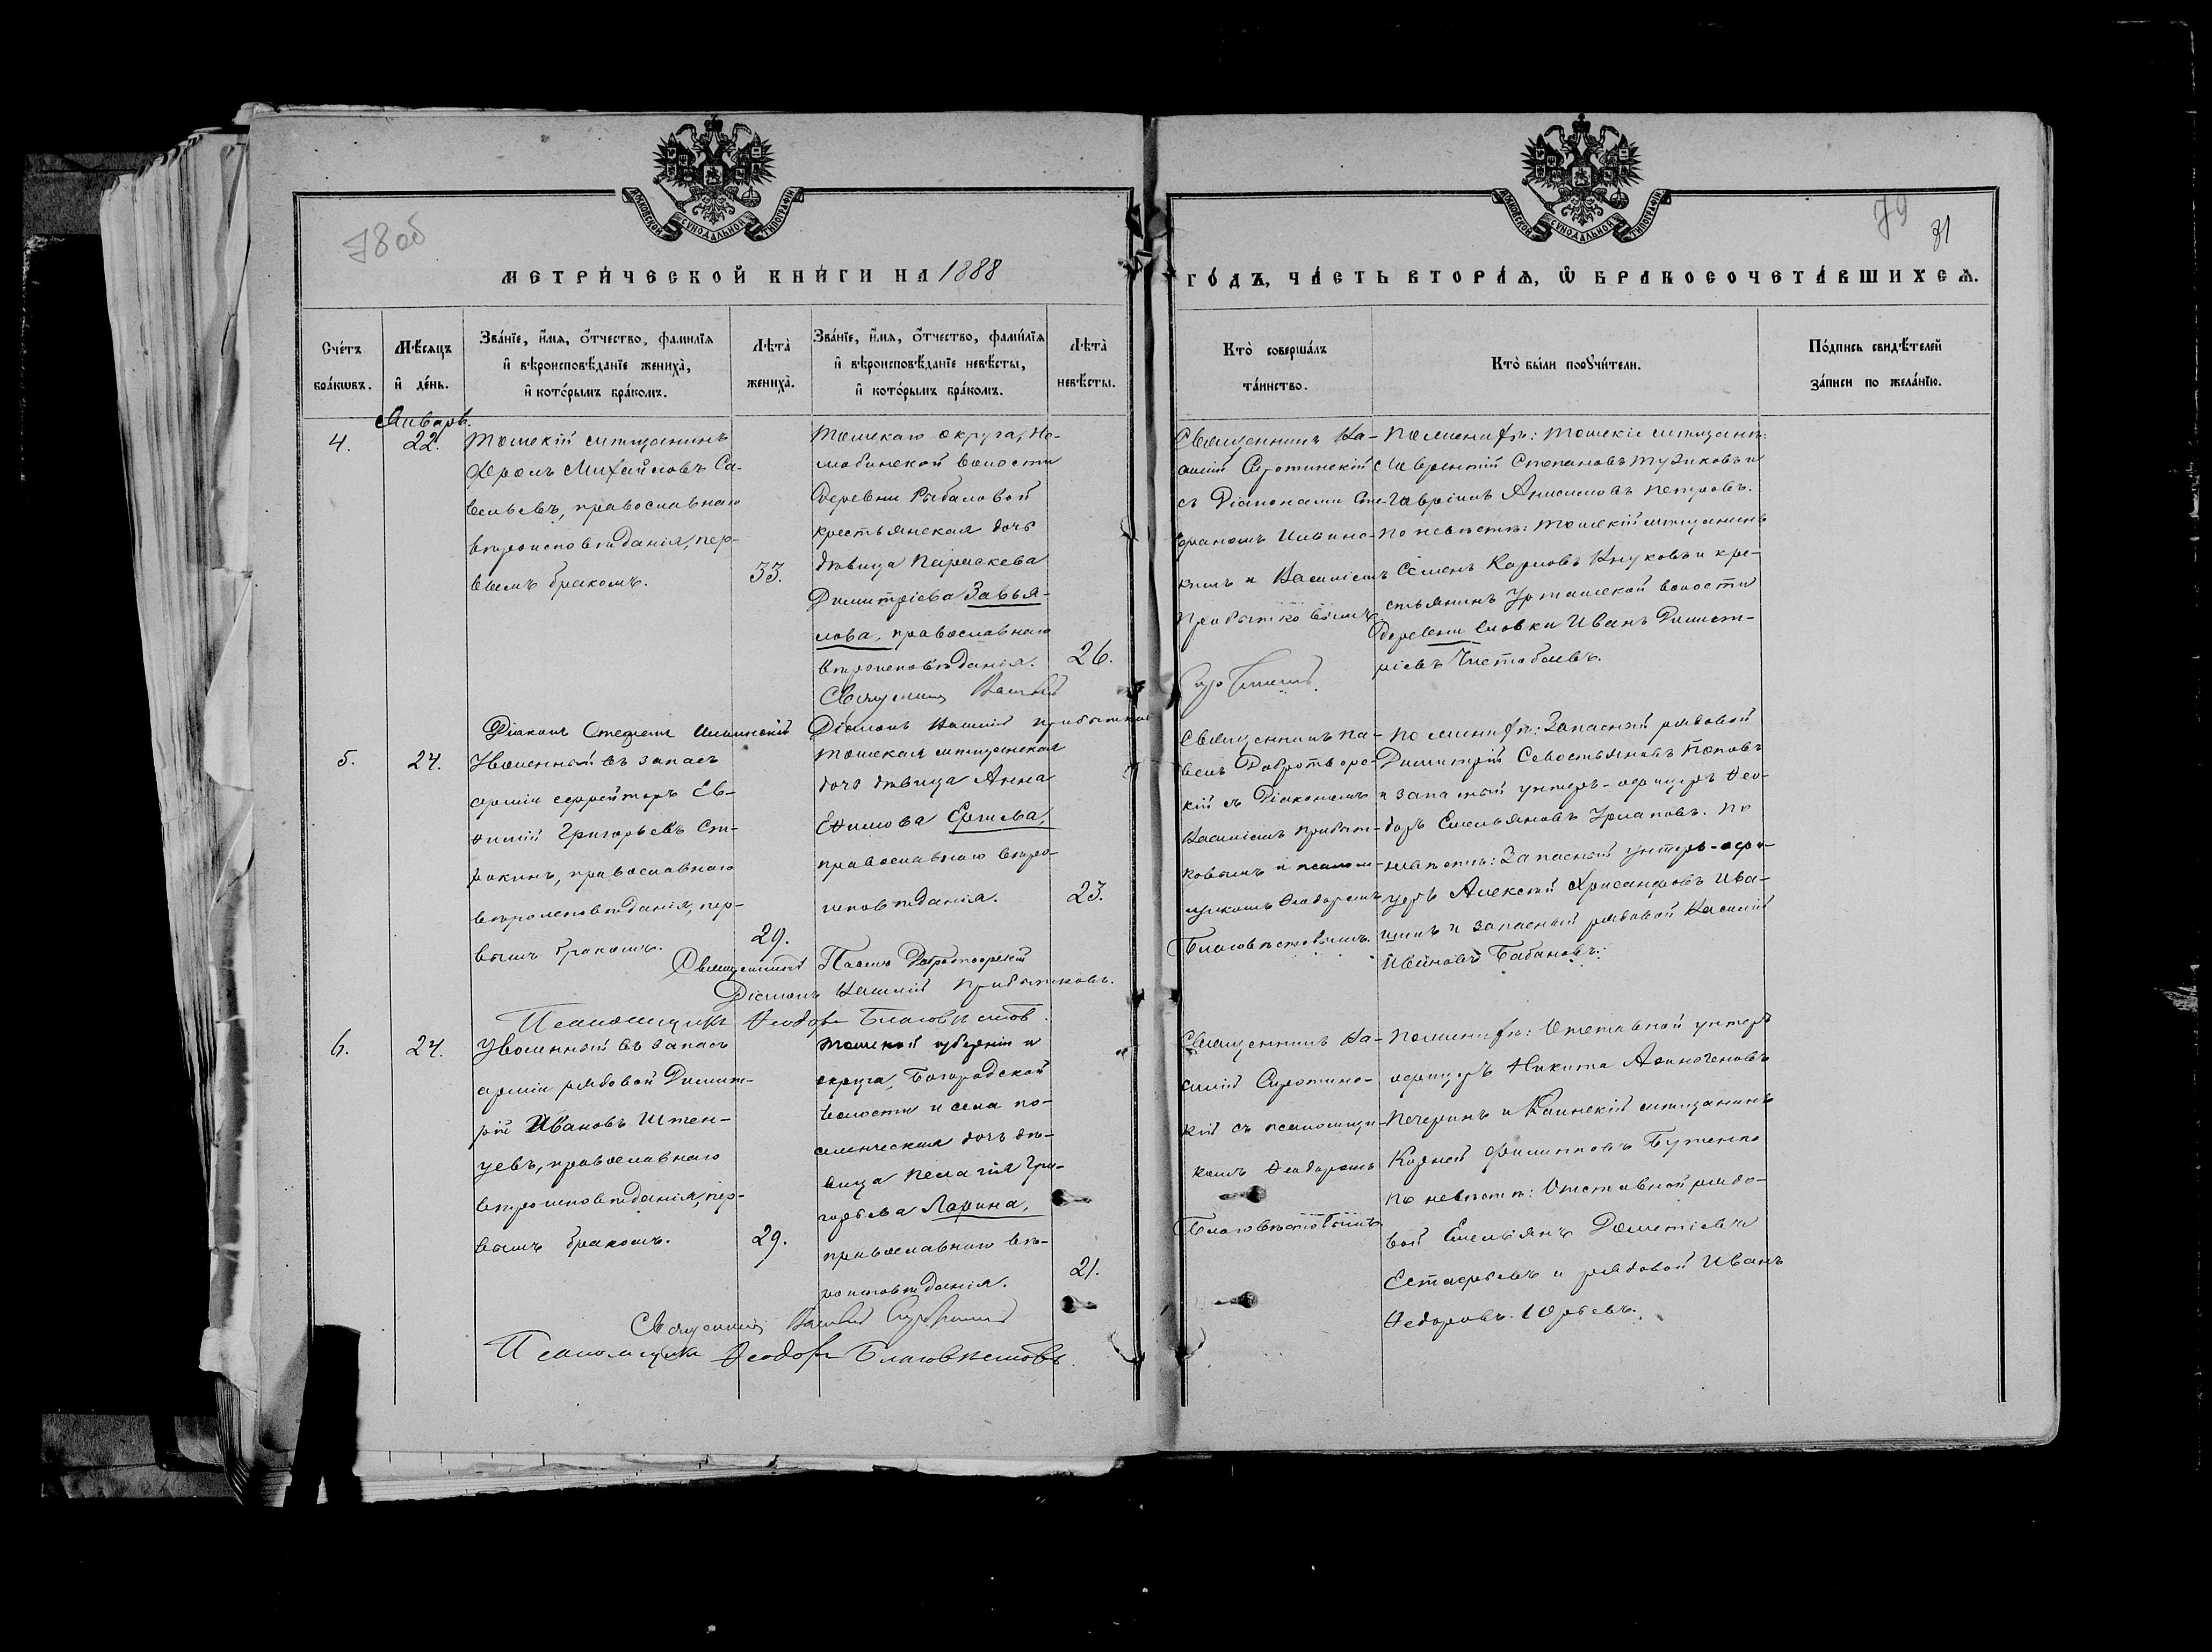 78 об
79
81
МОСКОВСКОЙ СѴНОДАЛЬНОЙ ТИПОГРАФІИ
МОСКОВСКОЙ СѴНОДАЛЬНОЙ ТИПОГРАФІИ
МЕТРИ́ЧЕСКОЙ КНИ́ГИ НА 1888
ГО́ДЪ, ЧА́СТЬ ВТОРА́Ѧ, Ѽ БРАКОСОЧЕТА́ВШИХСѦ.
Счéтъ
брáкωвъ.
Мѣ́сяцъ
и҆ дéнь.
Звáнїе, и҆́мя, ѻ҆́тчество, фамилїя
и҆ вѣроисповѣ́данїе женихà,
и҆ котóрымъ брáкомъ.
Лѣтà
женихà.
Звáнїе, и҆́мя, ѻ҆́тчество, фами́лїя
и҆ вѣроисповѣ́данїе невѣ́сты,
и҆ котóрымъ брáкомъ.
Лѣтà
невѣ́сты.
Ктò совершáлъ
тáинство.
Ктò были порꙋчи́тели.
Пóдпись свидѣ́телей
зáписи по желáнїю.
Январь.
4.
22.
Томскій мѣщанинъ
Фролъ Михайловъ Са-
вельевъ, православнаго
вѣроисповѣданія, пер-
вымъ бракомъ.
33.
Томскаго округа, Не-
любинской волости
деревни Рыбаловой
крестьянская дочь
дѣвица Параскева
Димитріева Завья-
лова, православнаго
вѣроисповѣданія.
26.
Священникъ Ва-
силій Сиротинскій
съ Діаконами Сте-
фаномъ Ильинс-
кимъ и Василіемъ
Прибытковымъ
По женихѣ: Томскіе мѣщане:
Лаврентій Степановъ Тузиковъ и
Гавріилъ Анисимовъ Петровъ.
По невѣстѣ: Томскій мѣщанинъ
Семенъ Карповъ Внуковъ и кре-
стьянинъ Уртамской волости
деревни Еловки Иванъ Димит-
ріевъ Чистобаевъ.
Священникъ Василій
Діаконъ Стефанъ Ильинскій Діаконъ Василій Прибытков
5.
24.
Уволенный въ запасъ
арміи ефрейторъ Ев-
ѳимій Григорьевъ Ст-
рокинъ, православнаго
вѣроисповѣданія, пер-
вымъ бракомъ.
29.
Томская мѣщанская
дочь дѣвица Анна
Еѳимова Ергиева,
православнаго вѣро-
исповѣданія.
23.
Священникъ Па-
велъ Добротворс-
кій съ Діакономъ
Василіемъ Прибыт-
ковымъ и псалом-
щикомъ Ѳеодоромъ
Благовѣстовымъ.
По женихѣ: Запасный рядовой
Димитрій Севостьяновъ Поповъ
и запасный унтеръ-офицеръ Ѳео-
доръ Емельяновъ Урлаповъ. По
невѣстѣ: Запасный унтеръ-офи-
церъ Алексѣй Хрисанфовъ Ива-
щинъ и запасный рядовой Василій
Ивановъ Бабановъ.
Священникъ Павелъ Добротворскій
Діаконъ Василій Прибытковъ.
Псаломщикъ Ѳеодоръ Благовѣстовъ.
6.
24.
Уволенный въ запасъ
арміи рядовой Димит-
рій Ивановъ Штен-
цевъ, православнаго
вѣроисповѣданія, пер-
вымъ бракомъ.
29.
Томской губерніи и
округа, Богородской
волости и села по-
селенческая дочь дѣ-
вица Пелагія Гри-
горьева Ларина,
православнаго вѣ-
роисповѣданія.
21.
Священникъ Ва-
силій Сиротинс-
кій съ псаломщи-
комъ Ѳеодоромъ
Благовѣстовымъ
По женихѣ: Отставной унтеръ
офицеръ Никита Аѳиногеновъ
Печеринъ и Каинскій мѣщанинъ
Корней Филипповъ Бутенко
По невѣстѣ: Отставной рядо-
вой Емельянъ Дометіевъ
Естафьевъ и рядовой Иванъ
Ѳедоровъ Юрьевъ.
Священникъ Василій Сиротинскій
Псаломщикъ Ѳеодоръ Благовѣстовъ.